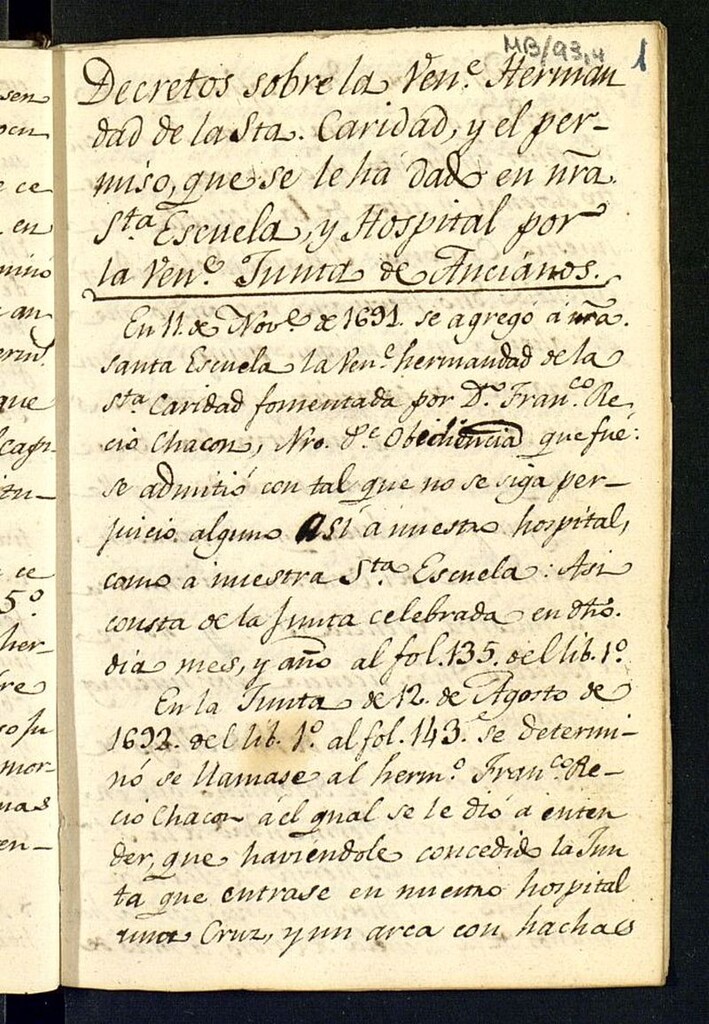 MB/93,4
1
Decretos sobre la Ven.e Herman
dad de la Sta. Caridad, y el per-
miso, que se le há dado en nr̃a.
Sta Escuela, y Hospital por
la Ven.e Junta de Anciános.
En 11. de Nov.e de 1691. se agregó á nr̃a.
santa Escuela la Ven.e hermandad de la
Sta Caridad fomentada por D.n Fran.co Re
cio Chacon, Nro. Obediencia que fué:
se admitió con tal que no se siga per-
juicio alguno Así á nuestro hospital,
como á nuestra Sta Escuela: Asi
consta de la Junta celebrada en dho.
dia mes, y año al fol. 135. del lib. 1º
En la Junta de 12. de Agosto de
1692. del lib. 1º. al fol. 143. se determi-
nó se llamase al herm.o Fran.co Re-
cio Chacon á el qual se le dió á enten
der, que haviendole concedido la Jun
ta que entrase en nuestro hospital
una Cruz, y un arca con hachas
sen
ocu
ce
en
an
que
tu-
ce
5º
her-
re
mor-
nas
en-